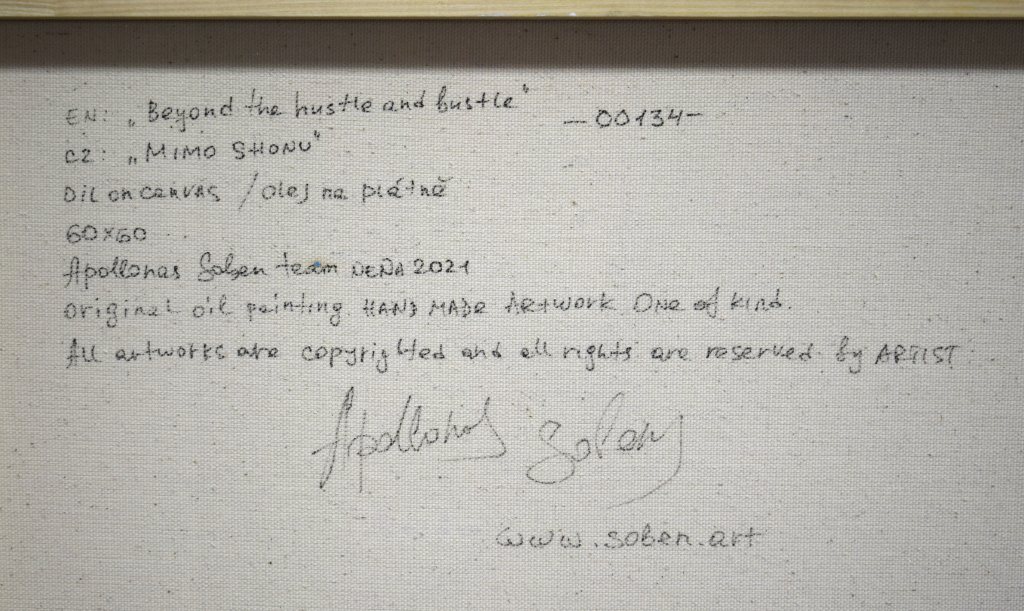 EN: „Beyond the hustle and bustle"
—00134—
CZ: „MIMO SHONU"
Oil on canvas / olej na plátně
60x60
Apollonas Soben team NENA 2021
Original oil painting HAND MADE ARTWORK One of kind.
All artworks are copyrighted and all rights are reserved by ARTIST
Apollonas Soben
www.soben.art